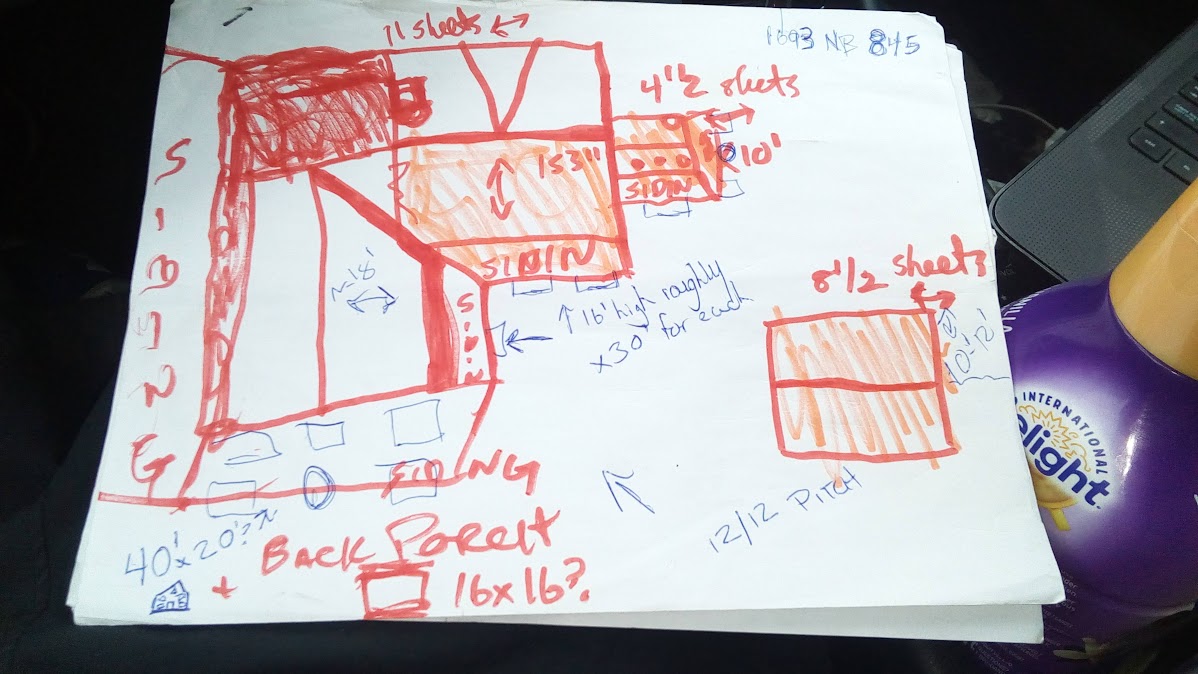 11 sheets
1693 NB 845
4 1/2 sheets
10'
153"
SIDIN
SIDING
SIDIN
SIDIN
~18'
16' high roughly
x30' for each
8 1/2 sheets
10'-12'
SIDING
12/12 PITCH
40' x 20'??
+ BACK PORCH
16x16?
INTERNATIONAL
elight